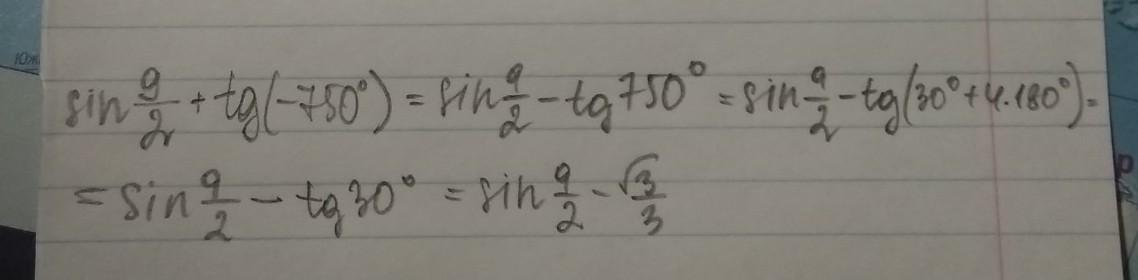 sin 9/2 + tg(-750°) = sin 9/2 - tg 750° = sin 9/2 - tg(30° + 4·180°) =
= sin 9/2 - tg 30° = sin 9/2 - √3/3